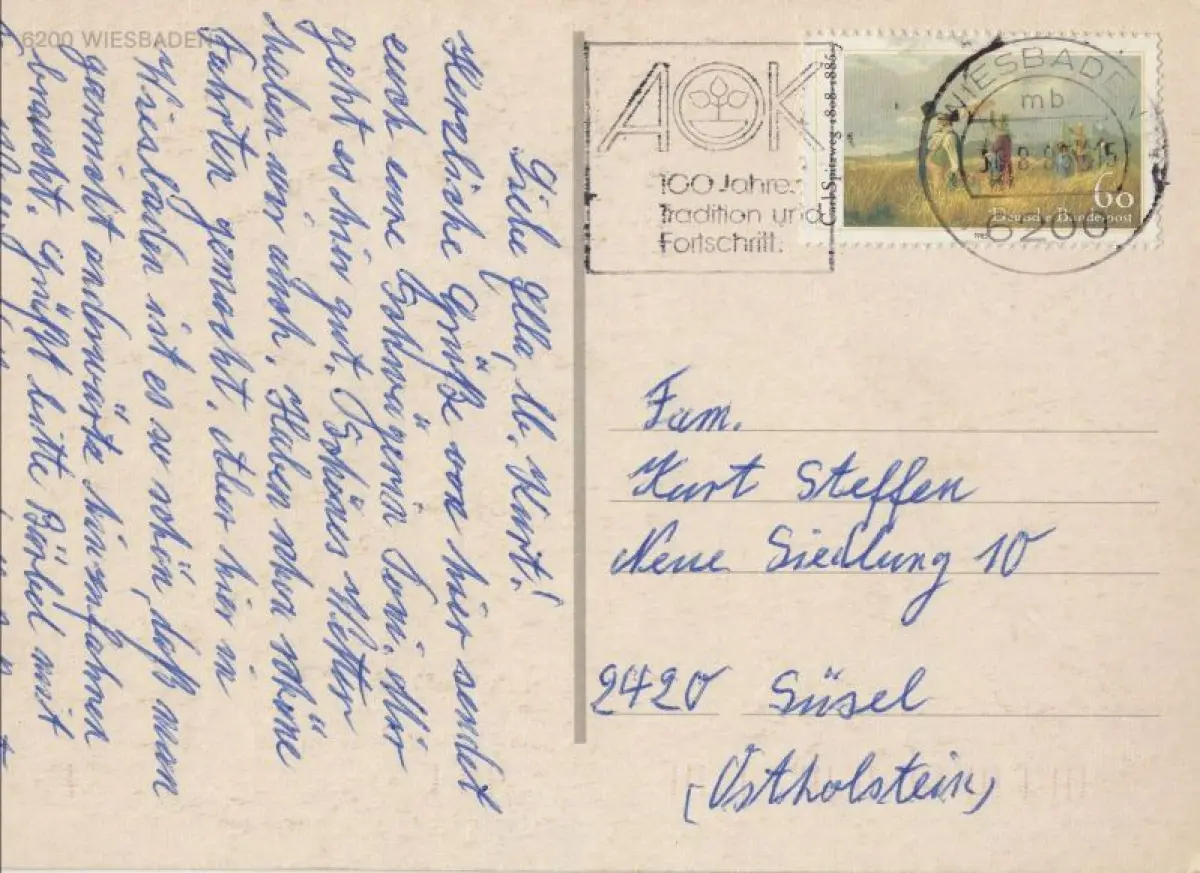 6200 WIESBADEN
Liebe Ella, u. Kurt!
Herzliche Grüße von hier sendet
euch eure Schwägerin Toni. Mir
geht es hier gut. Schönes Wetter
haben wir auch. Haben schon schöne
Fahrten gemacht. Aber hier in
Wiesbaden ist es so schön, daß man
garnicht auswärts hinzufahren
braucht. Grüßt bitte Bärbel mit
AOK
100 Jahre
Tradition und
Fortschritt.
Carl Spitzweg 1808-1885
60
Deutsche Bundespost
WIESBADEN
mb
6200
Fam.
Kurt Steffen
Neue Siedlung 10
2420 Süsel
(Ostholstein)